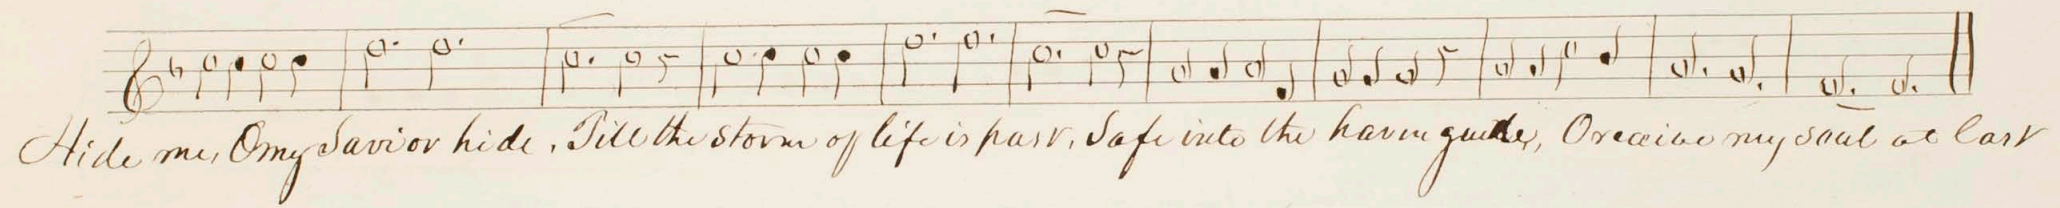 Hide me, O my Savior hide, Till the storm of life is past, Safe into the haven guide, O receive my soul at last